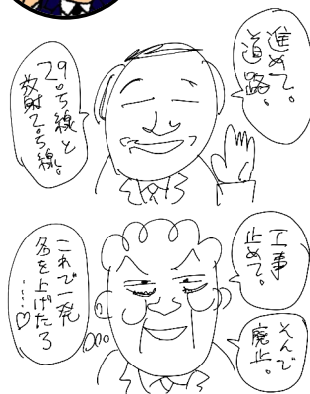 進めて。
道路。
29号線と
放射2号線。
工事
止めて。
そんで
廃止。
これで一発
名を上げたろ
……♡